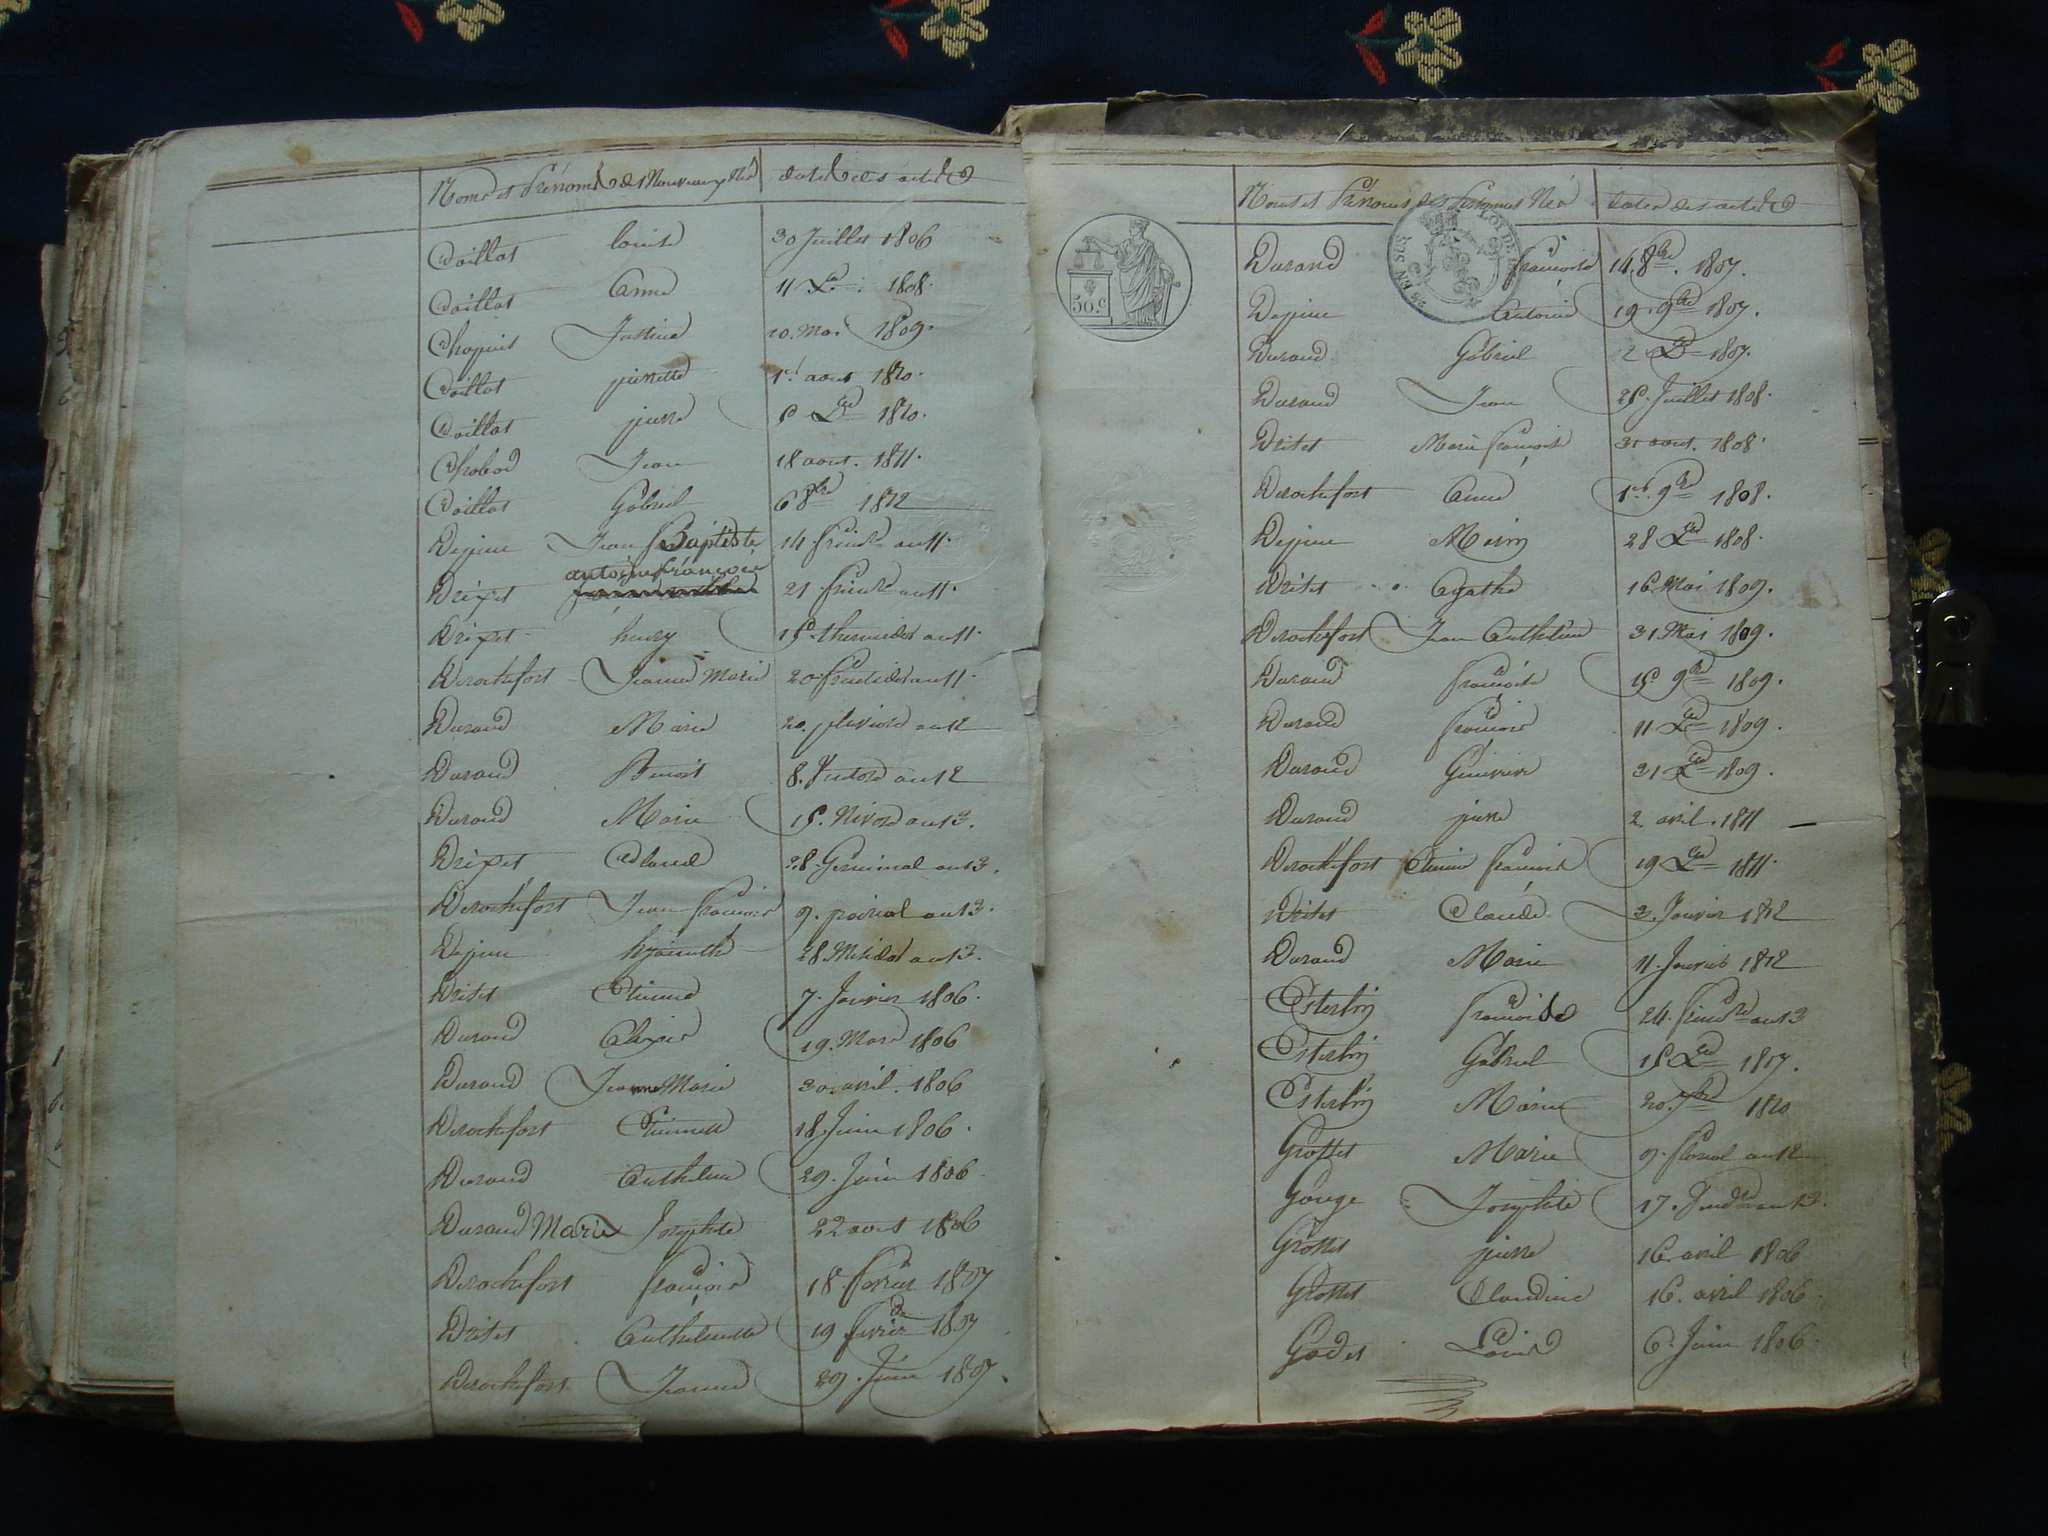 Noms et Prénoms des Nouveaux Nés dates des actes
Caillot louise 30 Juillet 1806
Caillot Anne 11 Xbre 1808.
Chapuis Justine 10. Mai 1809.
Caillot pierrette 1er aout 1810.
Caillot pierre 5 Xbre 1810.
Chabod Jean 18 aout. 1811.
Caillot Gabriel 6 8bre 1812
Dejeux Jean Baptiste 14 frimre an 11.
antoine françois
Dripet 21 frimre an 11.
Dripet henry 15. thermidor an 11.
Derochefort Jeanne Marie 20 fructidor an 11.
Durand Marie 20. pluviose an 12
Durand Benoit 8. Ventose an 12
Durand Marie 15. Nivose an 13.
Dripet Claude 28. Germinal an 13.
Derochefort Jean françois 9. prairial an 13.
Dejeux hyacinthe 28. Messidor an 13.
Dritet Etienne 7. Janvier 1806.
Durand Alexis 19. Mars 1806
Durand Jeanne Marie 30. avril. 1806
Derochefort Etiennette 18 Juin 1806.
Durand Anthelme 29. Juin 1806
Durand Marie Josephte 22 aout 1806
Derochefort françois 18 fevrier 1807
Dritet Anthelmette 19 fevrier 1807
Derochefort Jeanne 29. Juin 1807.
Noms et Prénoms des Nés dates des actes
50.c
EN SUS
LOI DE
Durand françoise 14. 8bre. 1807.
Dejeux Antoine 19. 9bre 1807.
Durand Gabriel 2 Xbre 1807.
Durand Jean 25. Juillet 1808.
Dritet Marie françoise 31 aout. 1808.
Derochefort Anne 1er. 9bre 1808.
Dejeux Marie 28 Xbre 1808.
Dritet Agathe 16 Mai 1809.
Derochefort Jean Anthelme 31. Mai 1809.
Durand françoise 15 9bre 1809.
Durand françois 11 Xbre 1809.
Durand Genevieve 31 Xbre 1809.
Durand pierre 2. avril. 1811
Derochefort Etienne françois 19 Xbre 1811.
Dritet Claude 3. Janvier 1812
Durand Marie 11. Janvier 1812
Esterlin françoise 24. frimre an 13
Esterlin Gabriel 15 Xbre 1807.
Esterlin Marie 20. 7bre 1810
Grosset Marie 9. floreal an 12
Gouge Josephte 17. Vendre an 13.
Grosset pierre 16 avril 1806
Grosset Claudine 16. avril 1806.
Godet Louis 6. Juin 1806.